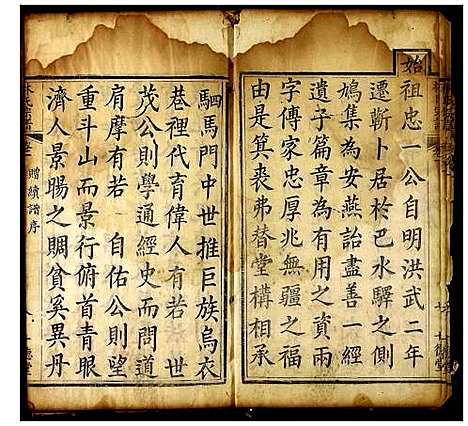 始
祖忠一公自明洪武二年
遷蘄卜居於巴水驛之側
鳩集為安燕詒盡善一經
遺子篇章為有用之資兩
字傳家忠厚兆無疆之福
由是箕裘弗替堂構相承
駟馬門中世推巨族烏衣
巷裡代育偉人有若 世
茂公則學通經史而問道
肩摩有若 自佑公則望
重斗山而景行俯首青眼
濟人景暘之賙貧奚異丹
贈續譜序